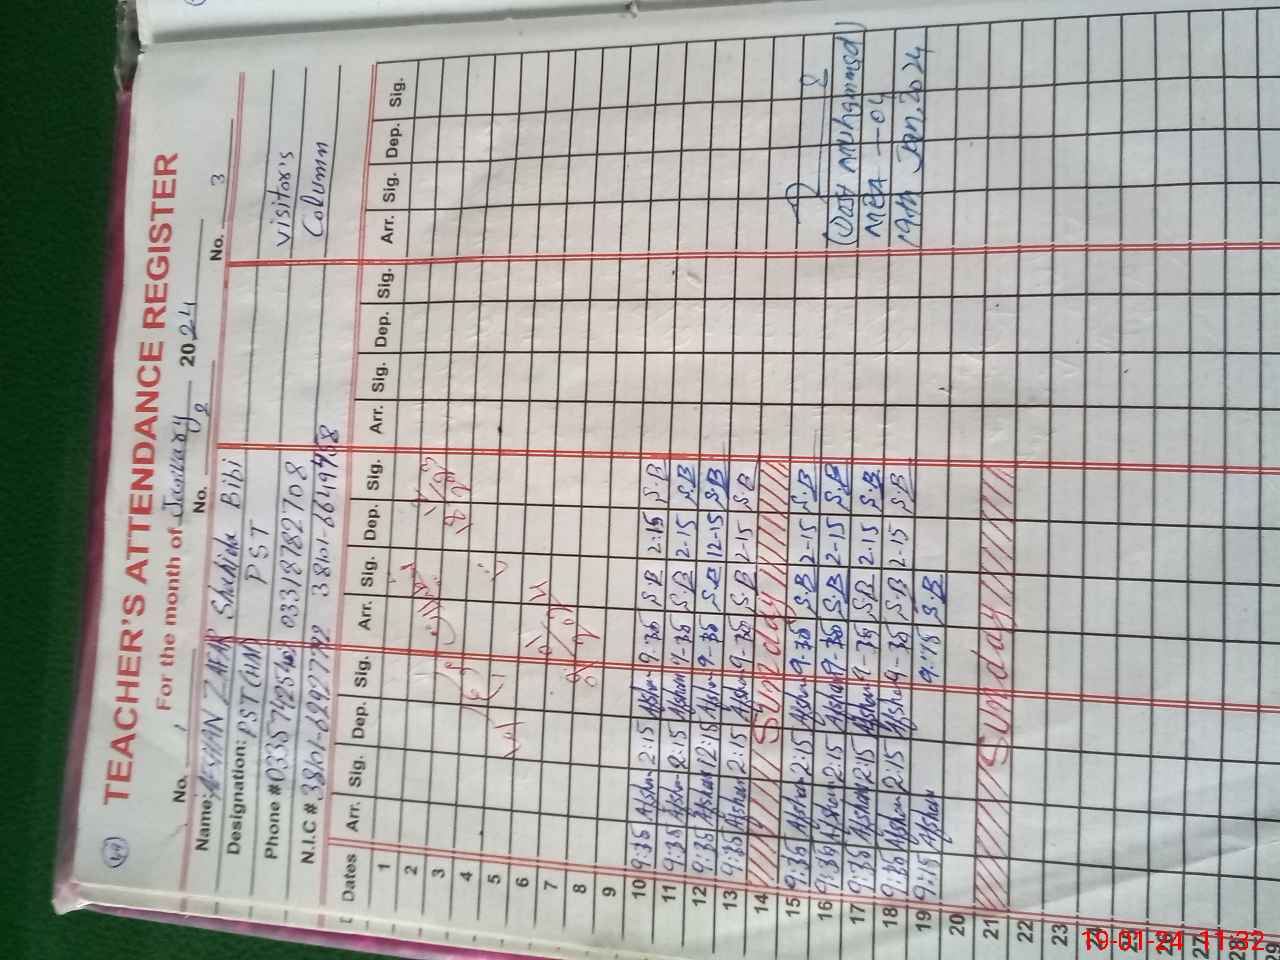 49
TEACHER'S ATTENDANCE REGISTER
For the month of January 2024
No. 1 No. 02 No. 3
Name: AFSHAN ZAFAR Shahida Bibi
Designation: PST (HM) PST visitor's
Phone # 03318782708 Column
N.I.C #
Dates Arr. Sig. Dep. Sig. Arr. Sig. Dep. Sig. Arr. Sig. Dep. Sig. Arr. Sig. Dep. Sig.
1
2
3
4
5
6
7
8
9
10 9:35 Afshan 2:15 Afshan 9-35 S.B 2:15 S.B
11 9:35 Afshan 2:15 Afshan 9-35 S.B 2-15 S.B
12 9:35 Afshan 12:15 Afshan 9-35 S.B 12-15 S.B
13 9:35 Afshan 2:15 Afshan 9-35 S.B 2-15 S.B
14 Sunday
15 9:35 Afshan 2:15 Afshan 9-35 S.B 2-15 S.B
16 9:35 Afshan 2:15 Afshan 9-30 S.B 2-15 S.B (Dost Muhammad)
17 9:35 Afshan 2:15 Afshan 9-35 S.B 2-15 S.B MEA-04
18 9:35 Afshan 2:15 Afshan 9-35 S.B 2-15 S.B 19th Jan, 2024
19 9:15 Afshan 9:15 S.B
20
21 Sunday
22
23
24
25
26
27
28
29
19-01-24 11:32